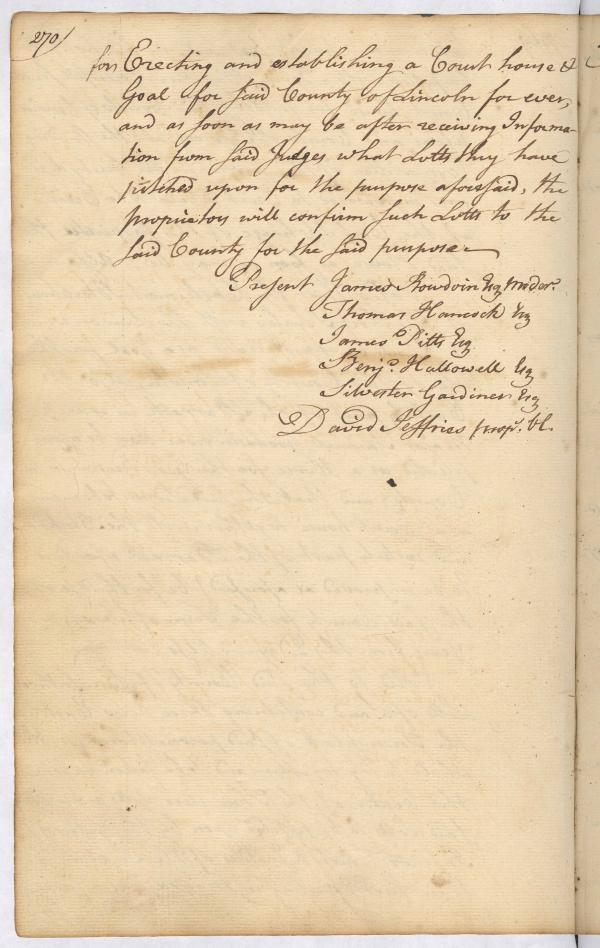 270/
for Erecting and establishing a Court house &
Goal for said County of Lincoln for ever,
and as soon as may be after receiving Informa-
tion from said Judges what Lotts they have
pitched upon for the purpose aforesaid, the
proprietors will confirm such Lotts to the
said County for the said purpose
Present James Bowdoin Esq moder.
Thomas Hancock Esq
James Pitts Esq
Benja. Hallowell Esq
Silvester Gardiner Esq
David Jeffries propr. Cl.